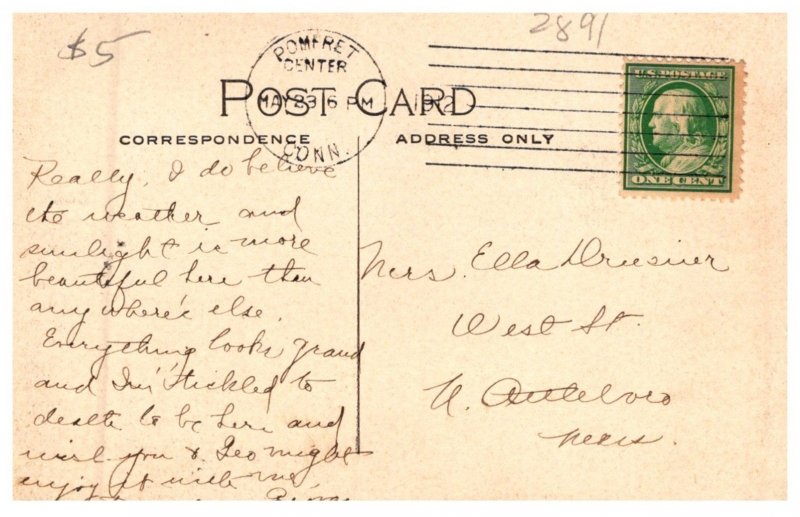 $5
2891
POMFRET
CENTER
MAY 23 6 PM
1912
CONN.
U.S. POSTAGE
ONE CENT
POST CARD
CORRESPONDENCE
ADDRESS ONLY
Really, I do believe
the weather and
sunlight is more
beautiful here than
any where else.
Everything looks grand
and I'm tickled to
death to be here and
wish you & Geo might
enjoy it with me,
Mrs. Ella
West St.
N. Attleboro
Mass.